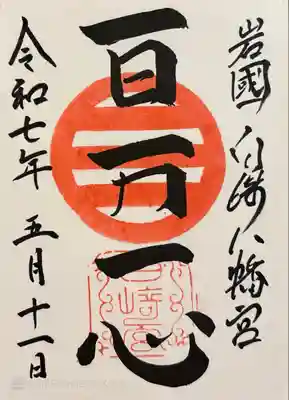 岩國 白崎八幡宮
百万一心
令和七年 五月十一日